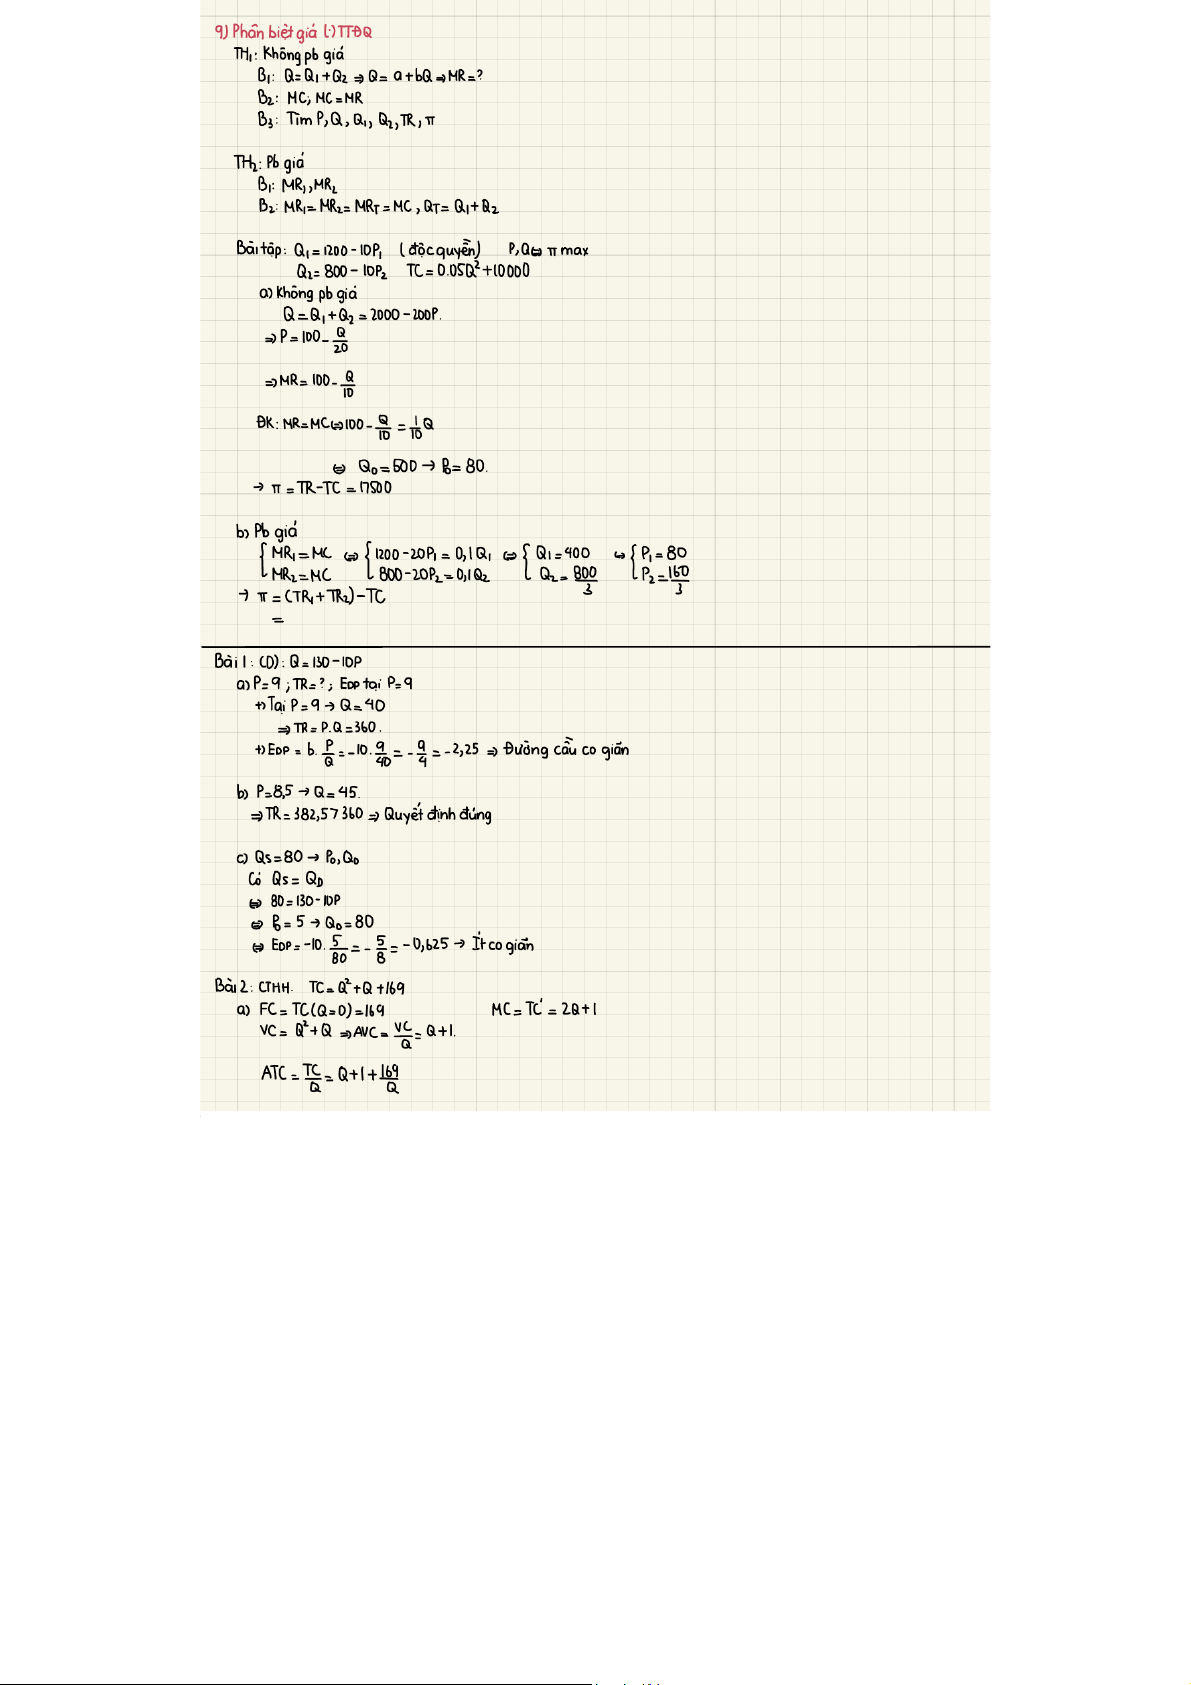 9) Phân biệt giá (·) TTĐQ
TH₁: Không pb giá
B₁: Q = Q₁ + Q₂ ⇒ Q = a + bQ ⇒ MR = ?
B₂: MC; MC = MR
B₃: Tìm P, Q, Q₁, Q₂, TR, π
TH₂: Pb giá
B₁: MR₁, MR₂
B₂: MR₁ = MR₂ = MR_T = MC, Q_T = Q₁ + Q₂
Bài tập: Q₁ = 1200 - 10P₁ (độc quyền) P, Q ⇔ π max
Q₂ = 800 - 10P₂ TC = 0.05Q² + 10000
a) Không pb giá
Q = Q₁ + Q₂ = 2000 - 200P.
⇒ P = 100 - Q/20
⇒ MR = 100 - Q/10
ĐK: MR = MC ⇔ 100 - Q/10 = 1/10 Q
⇔ Q₀ = 500 → P₀ = 80.
→ π = TR - TC = 17500
b) Pb giá
{ MR₁ = MC ⇔ { 1200 - 20P₁ = 0,1Q₁ ⇔ { Q₁ = 400 ↪ { P₁ = 80
MR₂ = MC 800 - 20P₂ = 0,1Q₂ Q₂ = 800/3 P₂ = 160/3
→ π = (TR₁ + TR₂) - TC
=
Bài 1: (D): Q = 130 - 10P
a) P = 9; TR = ?; E_DP tại P = 9
+) Tại P = 9 → Q = 40
⇒ TR = P.Q = 360.
+) E_DP = b. P/Q = -10. 9/40 = - 9/4 = -2,25 ⇒ Đường cầu co giãn
b) P = 8,5 → Q = 45.
⇒ TR = 382,5 > 360 ⇒ Quyết định đúng
c) Qs = 80 → P₀, Q₀
Có Qs = Q_D
⇔ 80 = 130 - 10P
⇔ P₀ = 5 → Q₀ = 80
⇔ E_DP = -10. 5/80 = - 5/8 = -0,625 → Ít co giãn
Bài 2: CTHH. TC = Q² + Q + 169
a) FC = TC(Q = 0) = 169 MC = TC' = 2Q + 1
VC = Q² + Q ⇒ AVC = VC/Q = Q + 1.
ATC = TC/Q = Q + 1 + 169/Q